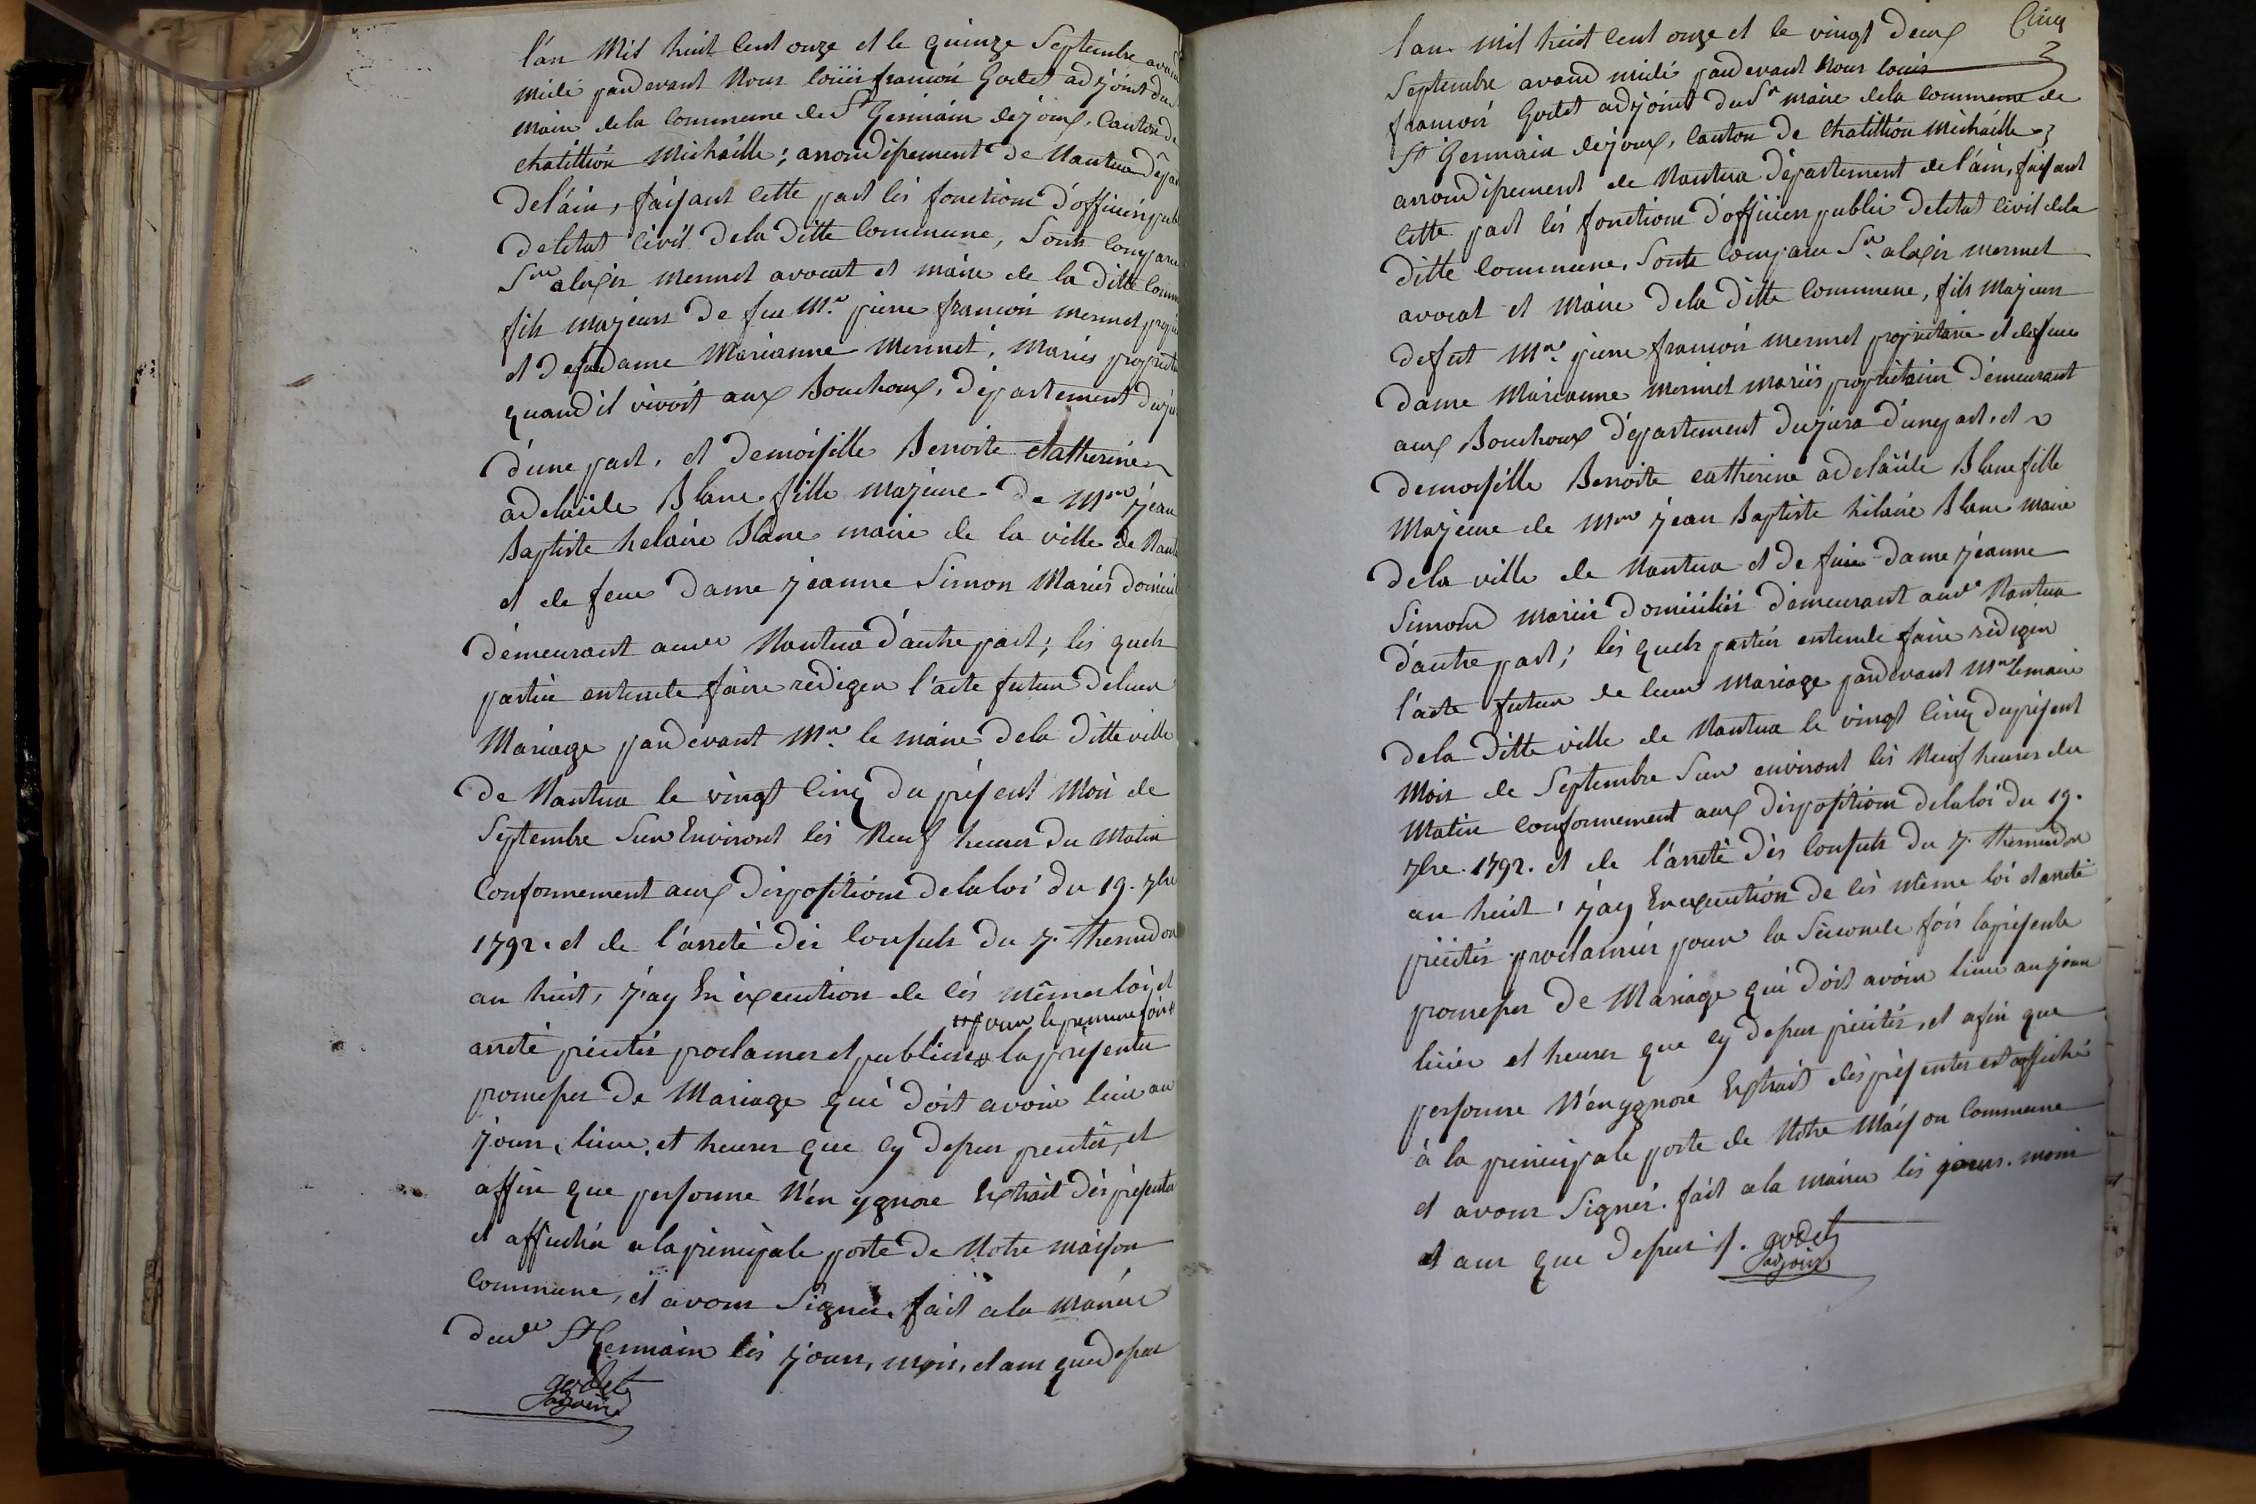 l'an Mil huit Cent onze et le quinze Septembre avant
midi pardevant Nous loüis francois Godet adjoint du
maire dela Commune de St Germain dejoux, Canton de
chatillion Michaille; arrondissement de Nantua
del'ain, faisant cette part les fonctions d'officier
deletat Civil dela ditte Commune, Sont
Sr alexis mermet avocat et maire de la ditte
fils majeur de feu Mr. pierre francois mermet
et defeu dame Marianne Mermet, Mariés
quand'il vivoit aux Bouchoux, departement dujura
d'une part, et demoiselle Benoite Catherine
adelaiide Blanc fille majeure de Mre jean
Baptiste helaire Blanc maire de la ville de Nantua
et de feue Dame jeanne Simon Mariés
demeurant audt Nantua d'autre part; les quels
parties entende faire rediger l'acte futur deleur
Mariage pardevant Mr. le maire dela ditte ville
de Nantua le vingt Cinq du présent Mois de
Septembre Sur Environt les Neuf heures du Matin
Conformement aux dispositions delaloi du 19. 7bre
1792. et de l'arreté des Consuls du 7. thermidor
an huit, j'ay En èxecution de ces mêmes loi, et
pour la premiere fois
arreté précités proclamer et publier la présente
promesses de Mariage qui doit avoir lieu au
jour, lieux, et heures que cy dessus precités, et
affin que personne N'en ygnore Extrait des présentes
et affiché a la principale porte de Notre maison
Commune, et avons Signés, fait ala mairie
dudt St Germain les jours, mois, et ans que dessus
godet
adjoint
Cinq
l'an mil huit cent onze et le vingt deux
Septembre avand midi pardevant Nous louis
francois Godet adjoint du Sr maire dela commune de
St Germain dejoux, Canton de Chatillion Michaille
arrondissement de Nantua département de l'ain, faisant
cette part les fonctions d'officier public deletat Civil dela
ditte Commune, Sont Comparu Sr. alexis mermet
avocat et Maire dela ditte Commune, fils Majeur
defeut Mr. pierre francois mermet propriétaire et defeue
dame Marianne mermet mariés propriétaires demeurant
aux Bouchoux departement dujura d'une part, et
demoiselle Benoite catherine adelaiide Blanc fille
Majeure de Mre jean Baptiste hilaire Blanc maire
dela ville de Nantua et de feue dame jeanne
Simond mariés domiciliés demeurant audt Nantua
d'autre part; les quels parties entende faire rédiger
l'acte futur de leur Mariage pardevant Mr le maire
dela ditte ville de Nantua le vingt Cinq du présent
Mois de Septembre Sur environt les Neuf heures du
Matin conformement aux dispositions dela loi du 19.
7bre. 1792. et de l'arreté des Consuls du 7. thermidor
an huit, j'ay En execution de ces même loi et arreté
précités proclamés pour la Seconde fois la présente
promesses de Mariage qui doit avoir lieux au jour
lieux et heures que cy dessus précités, et afin que
personne N'en ygnore Extrait des présentes est affiché
à la principale porte de Notre Maison Commune
et avons Signés. fait a la mairie les jours. mois
et ans que dessus /. godet
adjoint